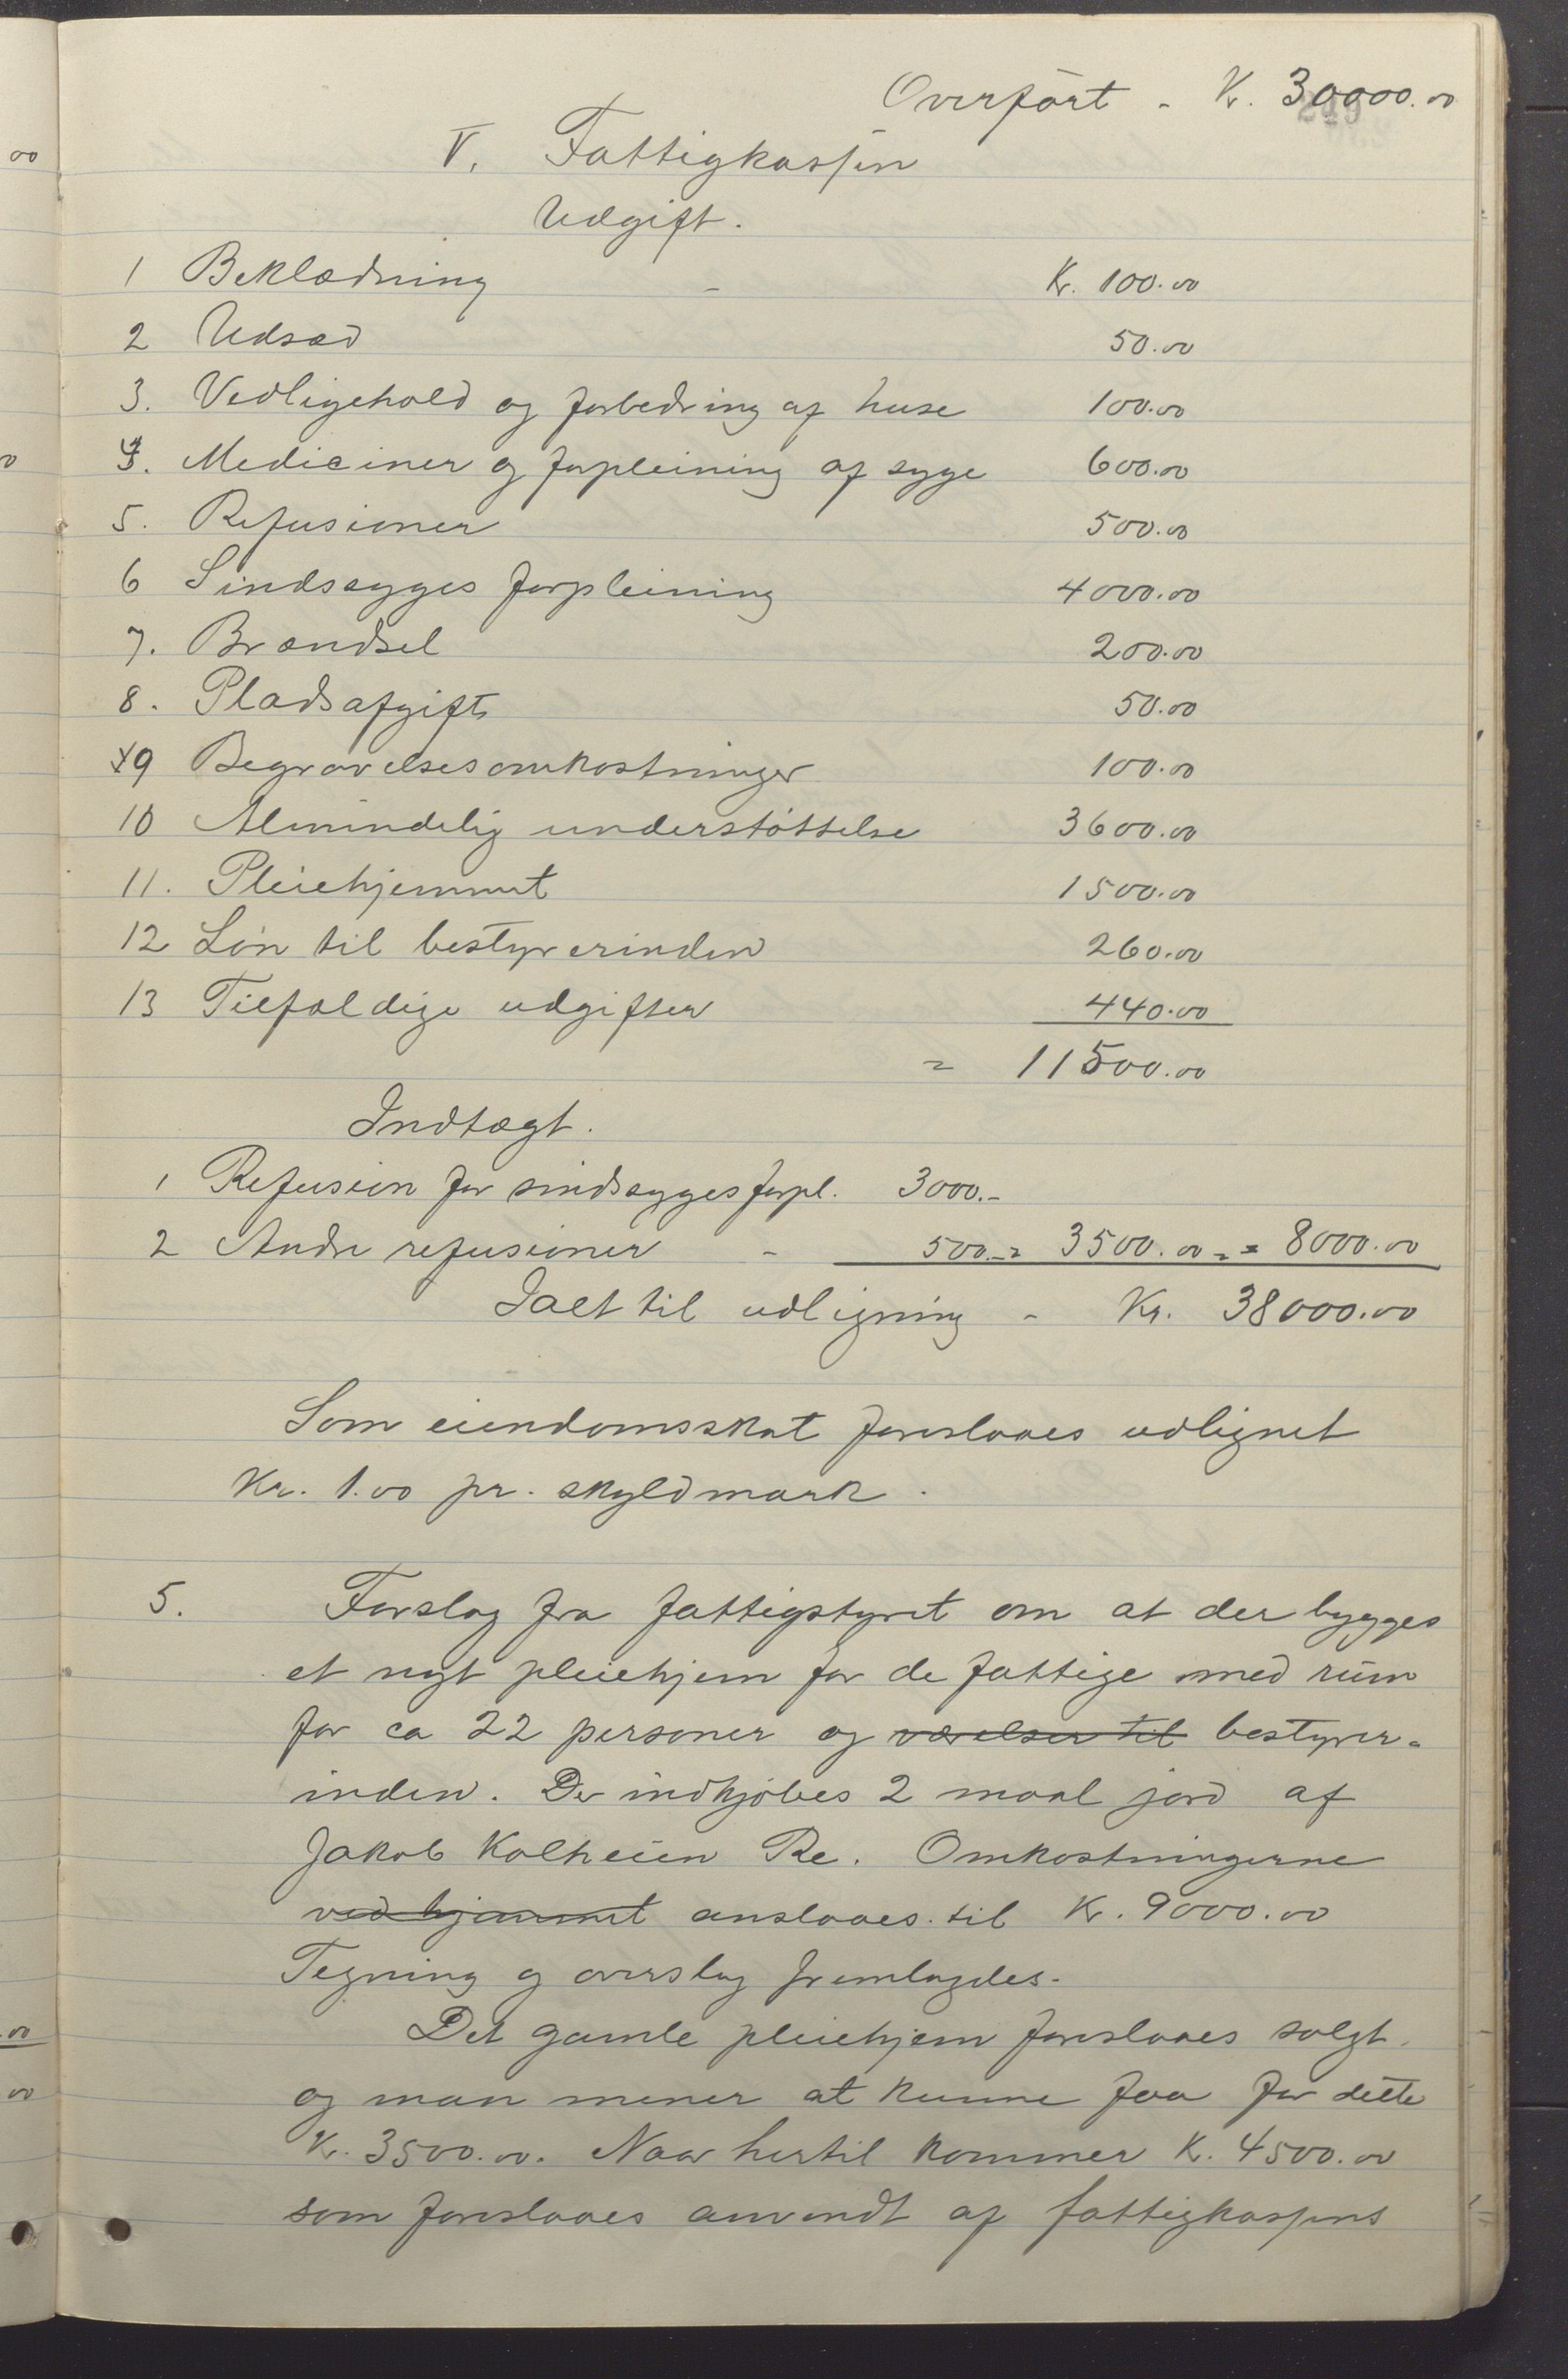 Overført - Kr. 30000.00
249
V. Fattigkassen
Udgift.
1 Beklædning - Kr. 100.00
2 Udsæd 50.00
3. Vedligehold og forbedring af huse 100.00
4. Mediciner og forpleining af syge 600.00
5. Refusioner 500.00
6 Sindsygges forpleining 4000.00
7. Brændsel 200.00
8. Pladsafgift 50.00
9 Begravelsesomkostninger 100.00
10 Almindelig understøttelse 3600.00
11. Pleiehjemmet 1500.00
12 Løn til bestyrerinden 260.00
13 Tilfældige udgifter 440.00
= 11500.00
Indtægt.
1 Refusion for sindsyggesforpl. 3000.-
2 Andre refusioner - 500.- = 3500.00 = 8000.00
Ialt til udligning - Kr. 38000.00
Som eiendomsskat foreslaaes udlignet
Kr. 1.00 pr. skyldmark.
5. Forslag fra fattigstyret om at der bygges
et nyt pleiehjem for de fattige med rum
for ca 22 personer og værelser til bestyrer-
inden. Der indkjøbes 2 maal jord af
Jakob Kalheien Re. Omkostningerne
ved hjemmet anslaaes til Kr. 9000.00
Tegning og overslag fremlagdes.
Det gamle pleiehjem foreslaaes solgt
og man mener at kunne faa for dette
Kr. 3500.00. Naar hertil kommer Kr. 4500.00
som foreslaaes anvendt af fattigkassens